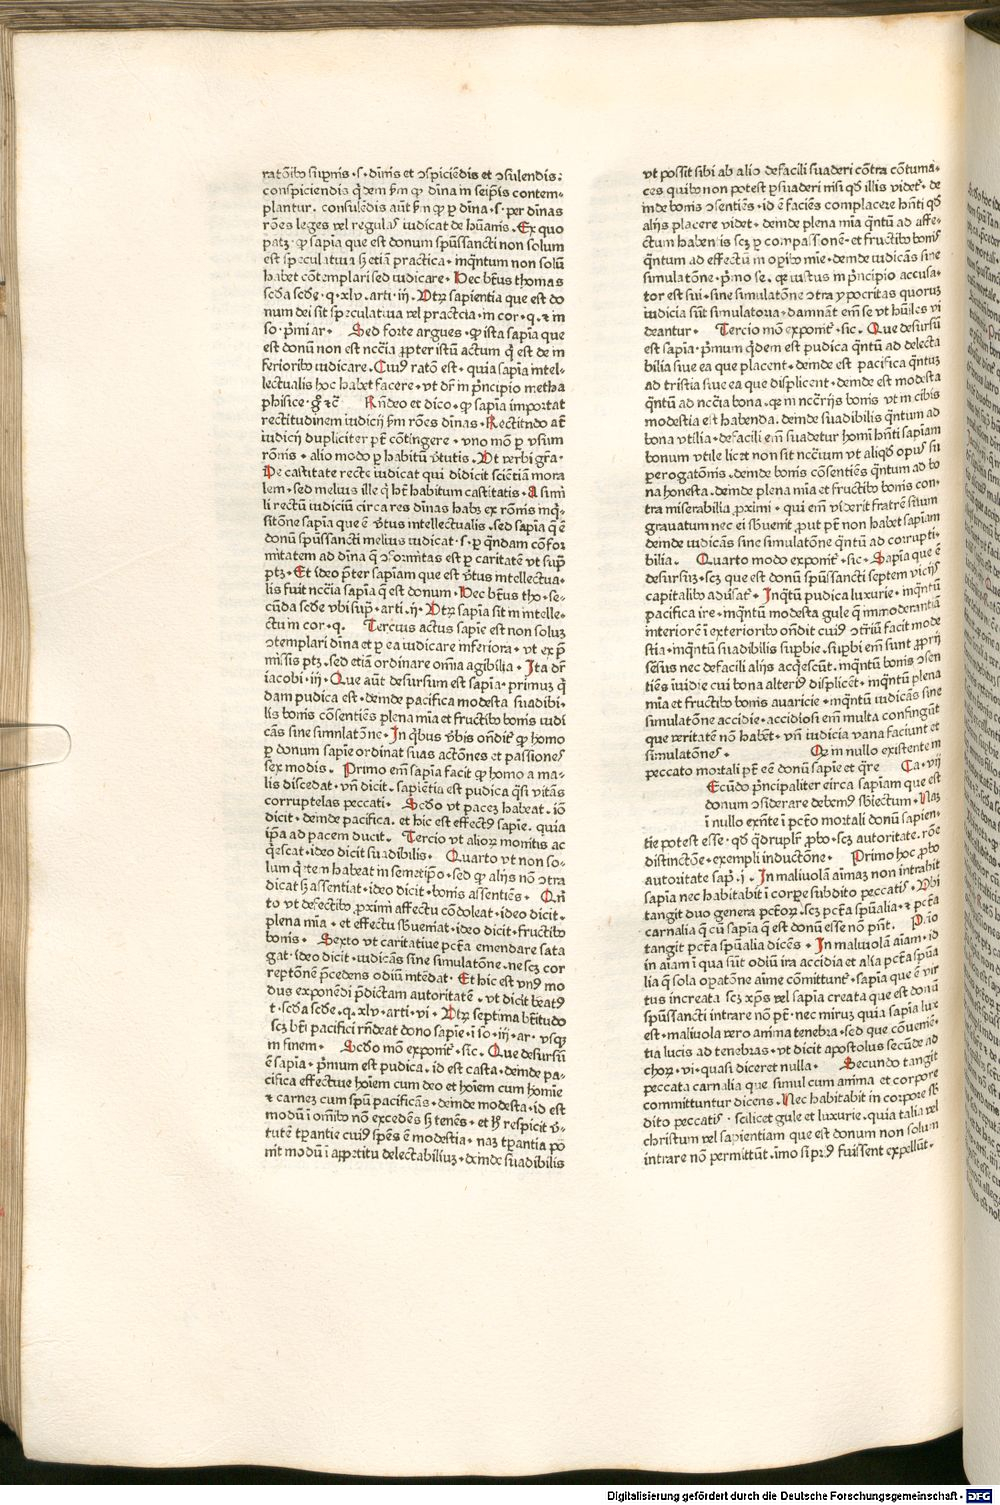 ratōibꝰ suꝑnis · s · dīnis et ↄspiciēdis et ↄsulendis:
conspiciendis q̄dem ẜm ꝙ dīna in seip̄is contem-
plantur. consulēdis aūt ẜm ꝙ ꝑ dīna · s · per dīnas
rōes leges vel regulas iudicat de hūanis. Ex quo
patꝫ · ꝙ sapīa que est donum spūssancti non solum
est speculatiua ẜ etiā practica · inq̄ntum non solū
habet cōtemplari sed iudicare. Hec bt̄us thomas
scd̄a scd̄e · q · xlv · arti · iij · Vtꝝ sapientia que est do
num dei sit speculatiua vel practcia · in cor · q · ⁊ in
so · p̄mi ar · Sed forte argues · ꝙ ista sapīa que
est donū non est nccīa ꝓpter istū actum q̄ est de in
ferioribꝰ iudicare. Cuiꝰ ratō est · quia sapīa intel-
lectualis hoc habet facere · vt dr̄ in p̄ncipio metha
phisice · gͦ ⁊c̄ Rn̄deo et dico · ꝙ sapīa importat
rectitudinem iudicij ẜm rōes dīnas · Rectitudo at̄
iudicij dupliciter pt̄ cōtingere · vno mō ꝑ vsum
rōnis · alio modo ꝑ habitū v̄tutis. Vt verbi gr̄a ·
De castitate recte iudicat qui didicit sciētiā mora
lem · sed melius ille q̄ hꝫ habitum castitatis · A simi
li rectū iudiciū circa res dīnas habꝫ ex rōnis inq̄-
sitōne sapīa que ē v̄tus intellectualis · sed sapīa q̄ ē
donū spūssancti melius iudicat · s · ꝑ q̄ndam cōfor
mitatem ad dīna q̄ ↄformitas est ꝑ caritatē vt sup̄
ptꝫ · Et ideo p̄ter sapīam que est v̄tus intellectua-
lis fuit nccīa sapīa q̄ est donum · Hec bt̄us tho · se-
cūda scd̄e vbi sup̄ · arti · ij · Vtꝝ sapīa sit in intelle-
ctu in cor · q. Tercius actus sapīe est non soluꝫ
ↄtemplari dīna et ꝑ ea iudicare inferiora · vt ex p̄
missis ptꝫ · sed etiā ordinare omīa agibilia · Ita dr̄
iacobi · iij · Que aūt desursum est sapīa · primuꝫ q̄
dam pudica est · deinde pacifica modesta suadibi-
lis bonis cōsentiēs plena mīa et fructibꝰ bonis iudi
cās sine simnlatōne · In q̄bus v̄bis on̄dit̄ ꝙ homo
ꝑ donum sapīe ordinat suas actōnes et passiones
sex modis. Primo em̄ sapīa facit ꝙ homo a ma-
lis discedat · vn̄ dicit. sapiētia est pudica q̄si vitās
corruptelas peccati · Scd̄o vt paceꝫ habeat. iō
dicit · deinde pacifica. et hic est effectꝰ sapīe. quia
ip̄a ad pacem ducit. Tercio vt alioꝝ monitis ac
q̄escat · ideo dicit suadibilis · Quarto vt non so-
lum q̄ tem habeat in semetip̄o · sed ꝙ alijs nō ↄtra
dicat ẜ assentiat · ideo dicit · bonis assentiēs · Qn̄
to vt defectibꝰ ꝓximi affectu cōdoleat · ideo dicit ·
plena mīa · et effectu sb̄ueniat · ideo dicit · fructibꝰ
bonis · Sexto vt caritatiue pctā emendare sata
gat · ideo dicit · iudicās sine simulatōne · nescꝫ cor
reptōnē p̄cedens odiū intēdat · Et hic est vnꝰ mo
dus exponēdi p̄dictam autoritatē · vt dicit beatꝰ
t · scd̄a scd̄e · q · xlv · arti · vi · Vtꝝ septima bt̄itudo
scꝫ bt̄i pacifici rn̄deat dono sapīe · ī so · iij · ar · vsqꝫ
in finem · Scd̄o mō exponit̄ · sic. Que desursū
ē sapīa · p̄mum est pudica · id est casta · deinde pa-
cifica effectiue hoīem cum deo et hoīem cum homīe
⁊ carneꝫ cum spū pacificās · deinde modesta · id est
modū ī om̄ibꝰ nō excedēs ẜ tenēs · et hꝫ respicit v̄-
tutē tꝑantie cuiꝰ spēs ē modestia · naꝫ tꝑantia po
nit modū ī appetitu delectabiliuꝫ · deinde suadibilis
vt possit sibi ab alio defacili suaderi cōtra cōtuma-
ces quibꝰ non potest ꝑsuaderi nisi qd̄ illis videt̄ · de
inde bonis ↄsentiēs · id ē faciēs complacere hn̄ti qd̄
alijs placere videt̄ · deinde plena mīa q̄ntū ad affe-
ctum habentis scꝫ ꝑ compassionē · et fructibꝰ bonis
q̄ntum ad effectū in oꝑibꝰ mīe · deinde iudicās sine
simulatōne · p̄mo se · qꝛ iustus in p̄ncipio accusa-
tor est sui · sine simulatōne ↄtra ypocritas quoruꝫ
iudicia sūt simulatoria · damnāt em̄ se vt hūiles vi
deantur · Tercio mō exponit̄ · sic. Que desursū
est sapīa · p̄mum q̄dem est pudica q̄ntū ad delecta
bilia siue ea que placent · deinde est pacifica q̄ntuꝫ
ad tristia siue ea que displicent · deinde est modesta
q̄ntū ad nccīa bona. qꝛ in nccr̄ijs bonis vt in cibis
modestia est habenda. deinde suadibilis q̄ntum ad
bona vtilia · defacili em̄ suadetur homī hn̄ti sapīam
bonum vtile licet non sit nccīum vt aliqd̄ opus su
ꝑerogatōnis · deinde bonis cōsentiēs q̄ntum ad bo
na honesta · deinde plena mīa et fructibꝰ bonis con-
tra miserabilia ꝓximi · qui em̄ viderit fratrē suum
grauatum nec ei sb̄uenit ꝓut pt̄ non habet sapīam
deinde iudicās sine simulatōne q̄ntū ad corrupti-
bilia. Quarto modo exponit̄ · sic · Sapīa que ē
desursuꝫ · scꝫ que est donū spūssancti septem vicijs
capitalibꝰ adūsat̄ · Inq̄tū pudica luxurie · inq̄ntū
pacifica ire · inq̄ntū modesta gule q̄ immoderantiā
interiorē ī exterioribꝰ on̄dit cuiꝰ ↄtriū facit mode
stia · inq̄ntū suadibilis suꝑbie. suꝑbi em̄ sunt ꝓprij
sēsus nec defacili alijs acq̄escūt. inq̄ntū bonis ↄsen
tiēs īuidie cui bona alteriꝰ displicēt · inq̄ntū plena
mīa et fructibꝰ bonis auaricie · inq̄ntū iudicās sine
simulatōne accidie · accidiosi em̄ multa confingūt
que veritatē nō habēt · vn̄ iudicia vana faciunt et
simulatōnes · Qꝛ in nullo existente in
peccato mortali pt̄ eē donū sapīe et q̄re Ca · vij
Ecūdo p̄ncipaliter circa sapīam que est
donum ↄsiderare debemꝰ sb̄iectum · Naꝫ
ī nullo exn̄te ī pctō mortali donū sapien-
tie potest esse · qd̄ q̄druplr̄ ꝓbo · scꝫ autoritate. rōe
distinctōe · exempli inductōne · Primo hoc ꝓbo
autoritate sap̄ · i · In maliuolā aīmaꝫ non intrabit
sapīa nec habitabit ī corꝑe subdito peccatis · Vbi
tangit duo genera pctōꝝ · scꝫ pctā spūalia · ⁊ pctā
carnalia q̄ cū sapīa q̄ est donū esse nō pn̄t. P̄io
tangit pctā spūalia dicēs · In maliuolā aīam · id
in aīam ī qua sūt odiū ira accidia et alia pctā spūa
lia q̄ sola oꝑatōne aīme cōmittunt̄ · sapīa que ē vir
tus increata scꝫ xp̄s vel sapīa creata que est donū
spūssancti intrare nō pt̄ · nec miruꝫ quia sapīa lux
est · maliuola vero anima tenebra · sed que cōueniē-
tia lucis ad tenebras · vt dicit apostolus secūde ad
choꝝ · vi · quasi diceret nulla · Secundo tangit
peccata carnalia que simul cum anima et corpore
committuntur dicens. Nec habitabit in corpore sb̄
dito peccatis · scilicet gule et luxurie. quia talia vel
christum vel sapientiam que est donum non solum
intrare nō permittūt. imo si priꝰ fuissent expellūt.
Digitalisierung gefördert durch die Deutsche Forschungsgemeinschaft - DFG